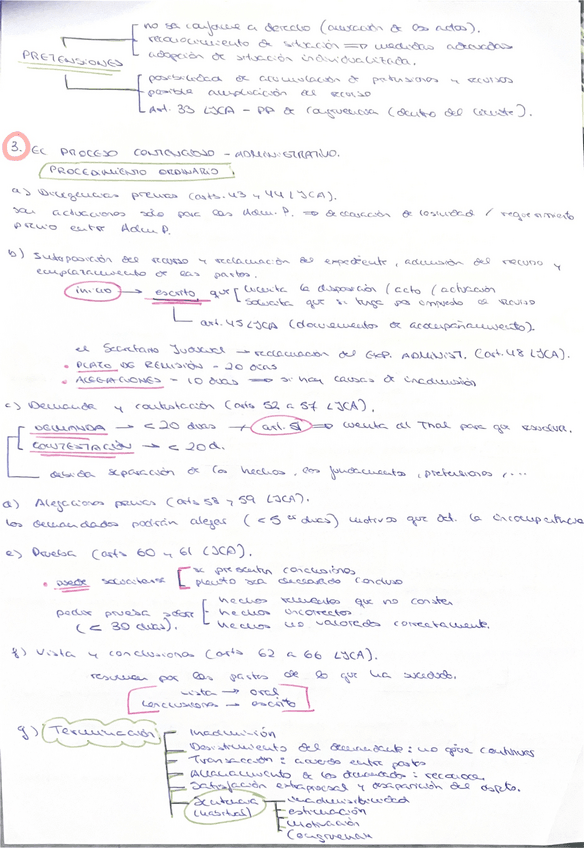 no sea conforme a derecho (anulación de los actos).
reconocimiento de situación => medidas adecuadas
adopción de situación individualizada.
PRETENSIONES
posibilidad de acumulación de pretensiones y recursos
posible ampliación del recurso
Art. 33 LJCA - PP de congruencia (dentro del límite).
3. EL PROCESO CONTENCIOSO - ADMINISTRATIVO.
PROCEDIMIENTO ORDINARIO
a) Diligencias previas (arts. 43 y 44 LJCA).
Son actuaciones sólo para las Adm. P. => declaración de lesividad / requerimiento
previo entre Adm. P.
b) Interposición del recurso y reclamación del expediente, admisión del recurso y
emplazamiento de las partes.
inicio → escrito que la disposición / acto / actuación
solicita que se tenga por el recurso
art. 45 LJCA (documentos de acompañamiento).
el Secretario Judicial → reclamación del EXP. ADMINIST. (art. 48 LJCA).
• PLAZO DE REMISIÓN - 20 días
• ALEGACIONES - 10 días => si hay causas de inadmisión
c) Demanda y contestación (arts 52 a 57 LJCA).
DEMANDA → < 20 días → art. => cuenta al Tnal para que resuelva.
CONTESTACIÓN → < 20 d.
debida separación de los hechos, los fundamentos, pretensiones, ...
d) Alegaciones previas (arts 58 y 59 LJCA).
los demandados podrán alegar (< 5 días) motivos que det. la incompetencia
e) Prueba (arts 60 y 61 LJCA).
• puede solicitarse se presenten conclusiones
pleito sea declarado concluso
pedir prueba sobre hechos que no consten
(< 30 días). hechos incorrectos
hechos no valorados correctamente.
f) Vista y conclusiones (arts 62 a 66 LJCA).
resumen por las partes de lo que ha sucedido.
vista → oral
conclusiones → escrito
g) Terminación
Inadmisión
Desistimiento del demandante: no continuar
Transacción: acuerdo entre partes
Allanamiento de los demandados: reconocen
Satisfacción extraprocesal y desaparición del objeto.
Sentencia → inadmisibilidad
estimación
motivación
Congruencia